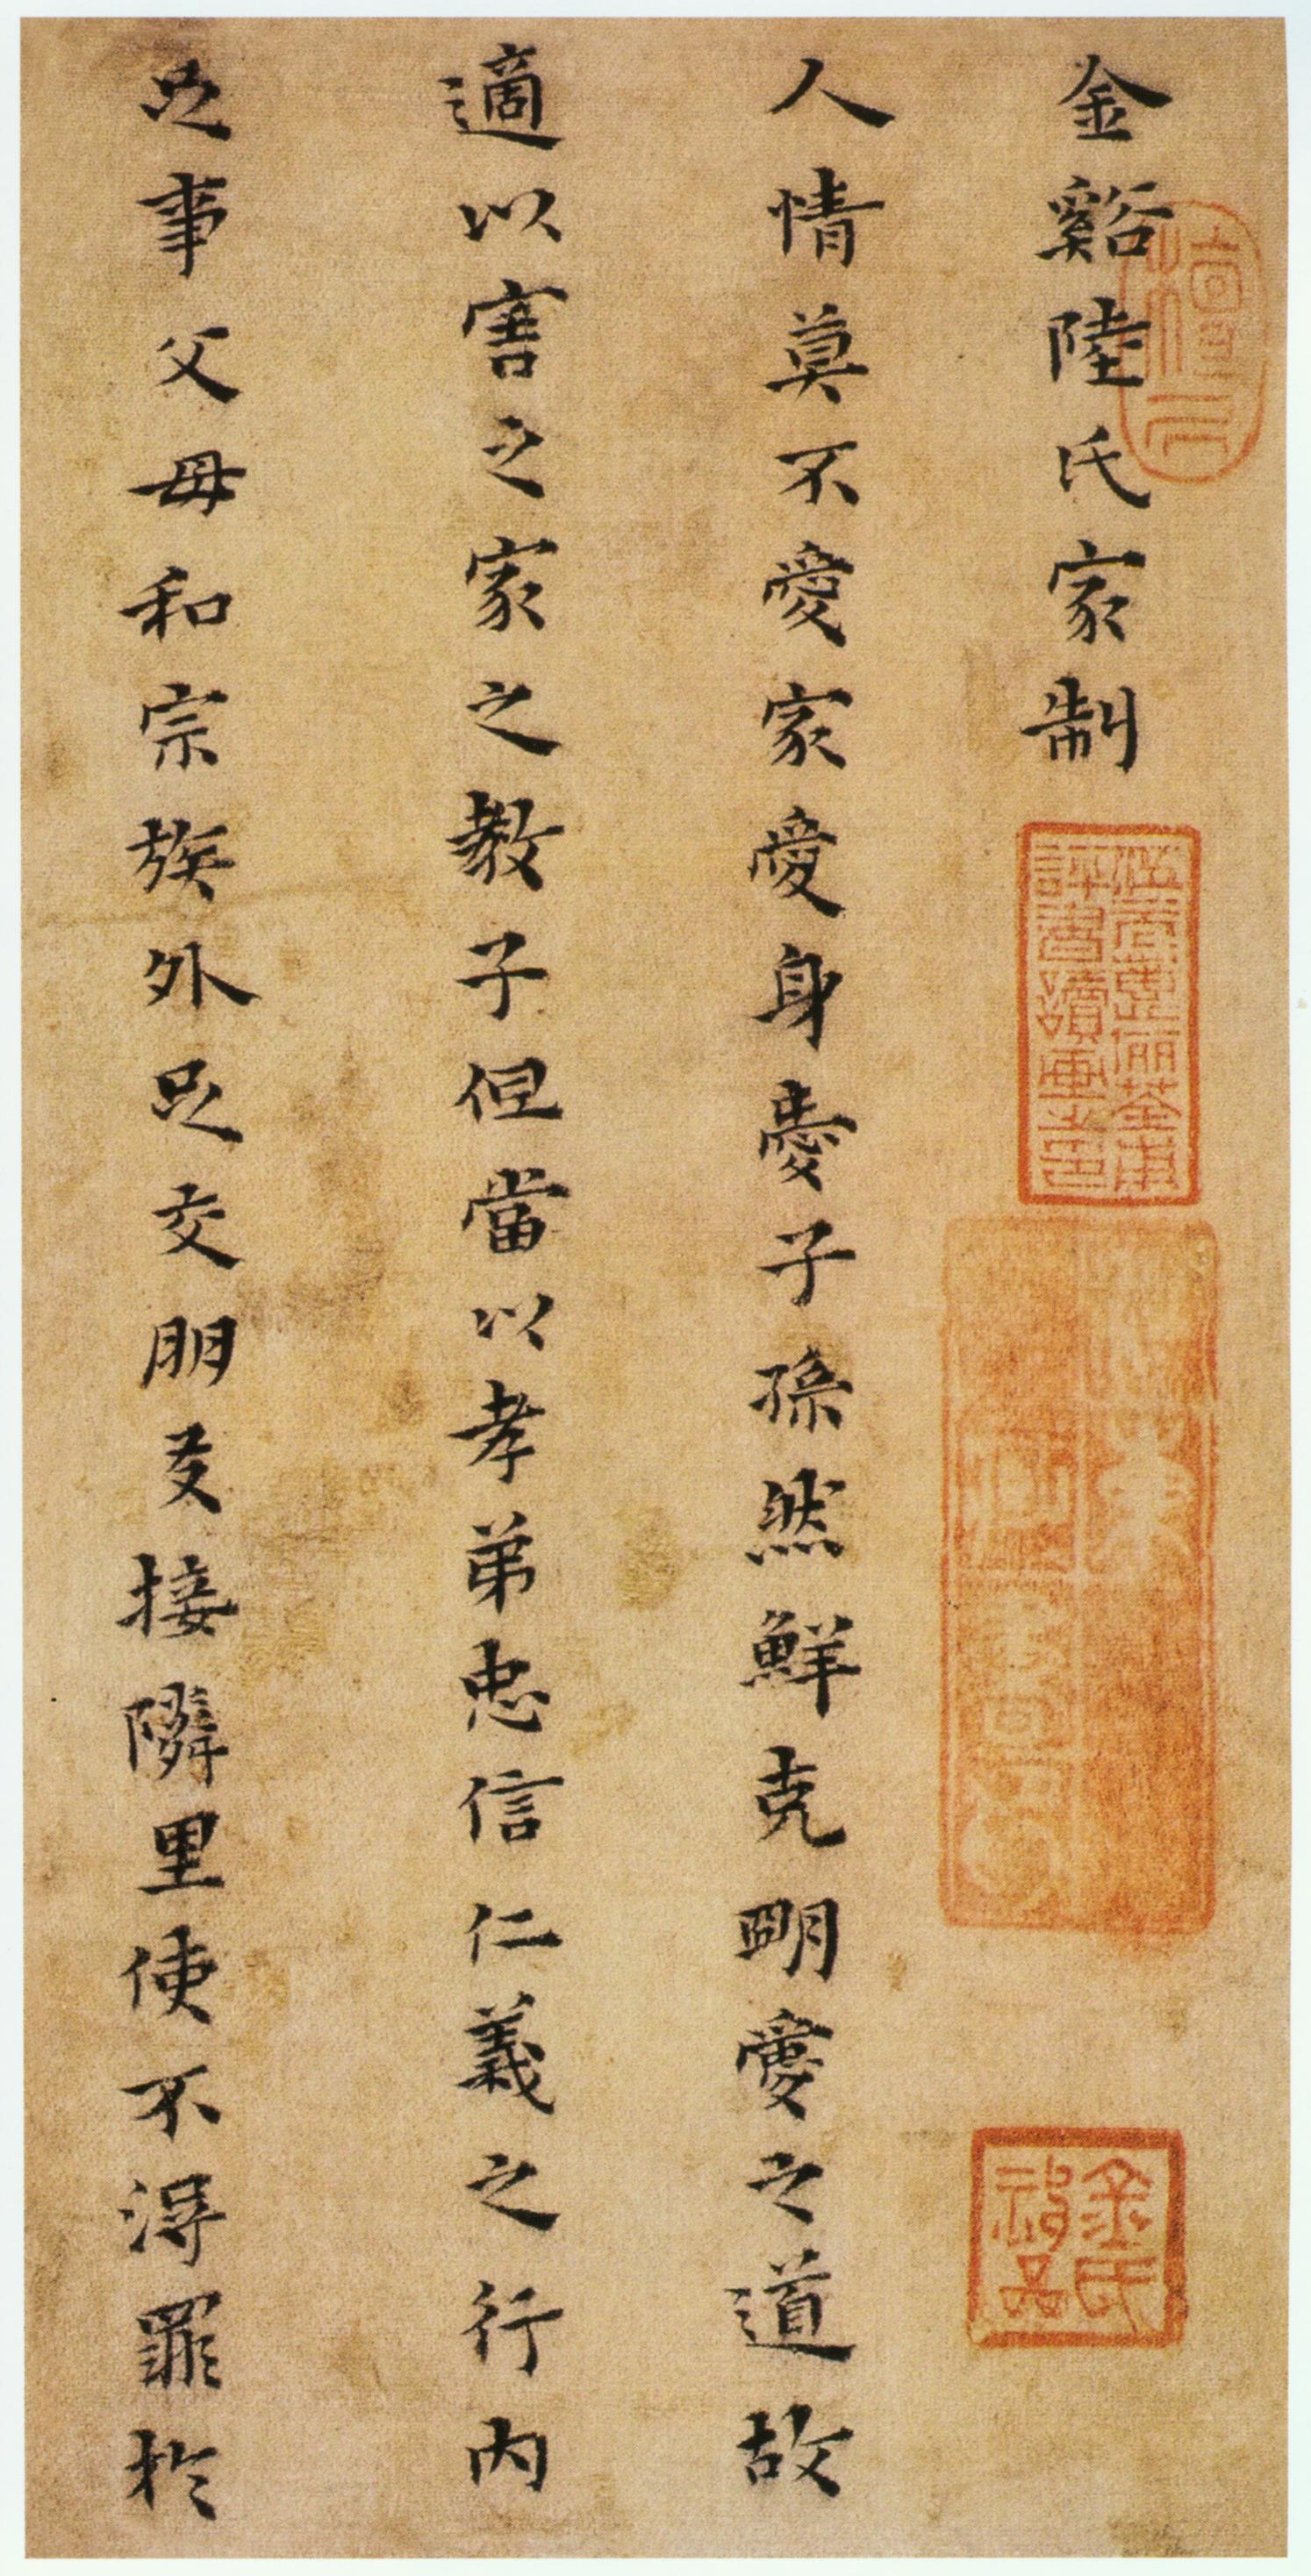 金谿陸氏家制
人情莫不愛家愛身愛子孫然鮮克明愛之道故
適以害之家之教子但當以孝弟忠信仁義之行内
足事父母和宗族外足交朋友接隣里使不得罪於
評書讀畫之印